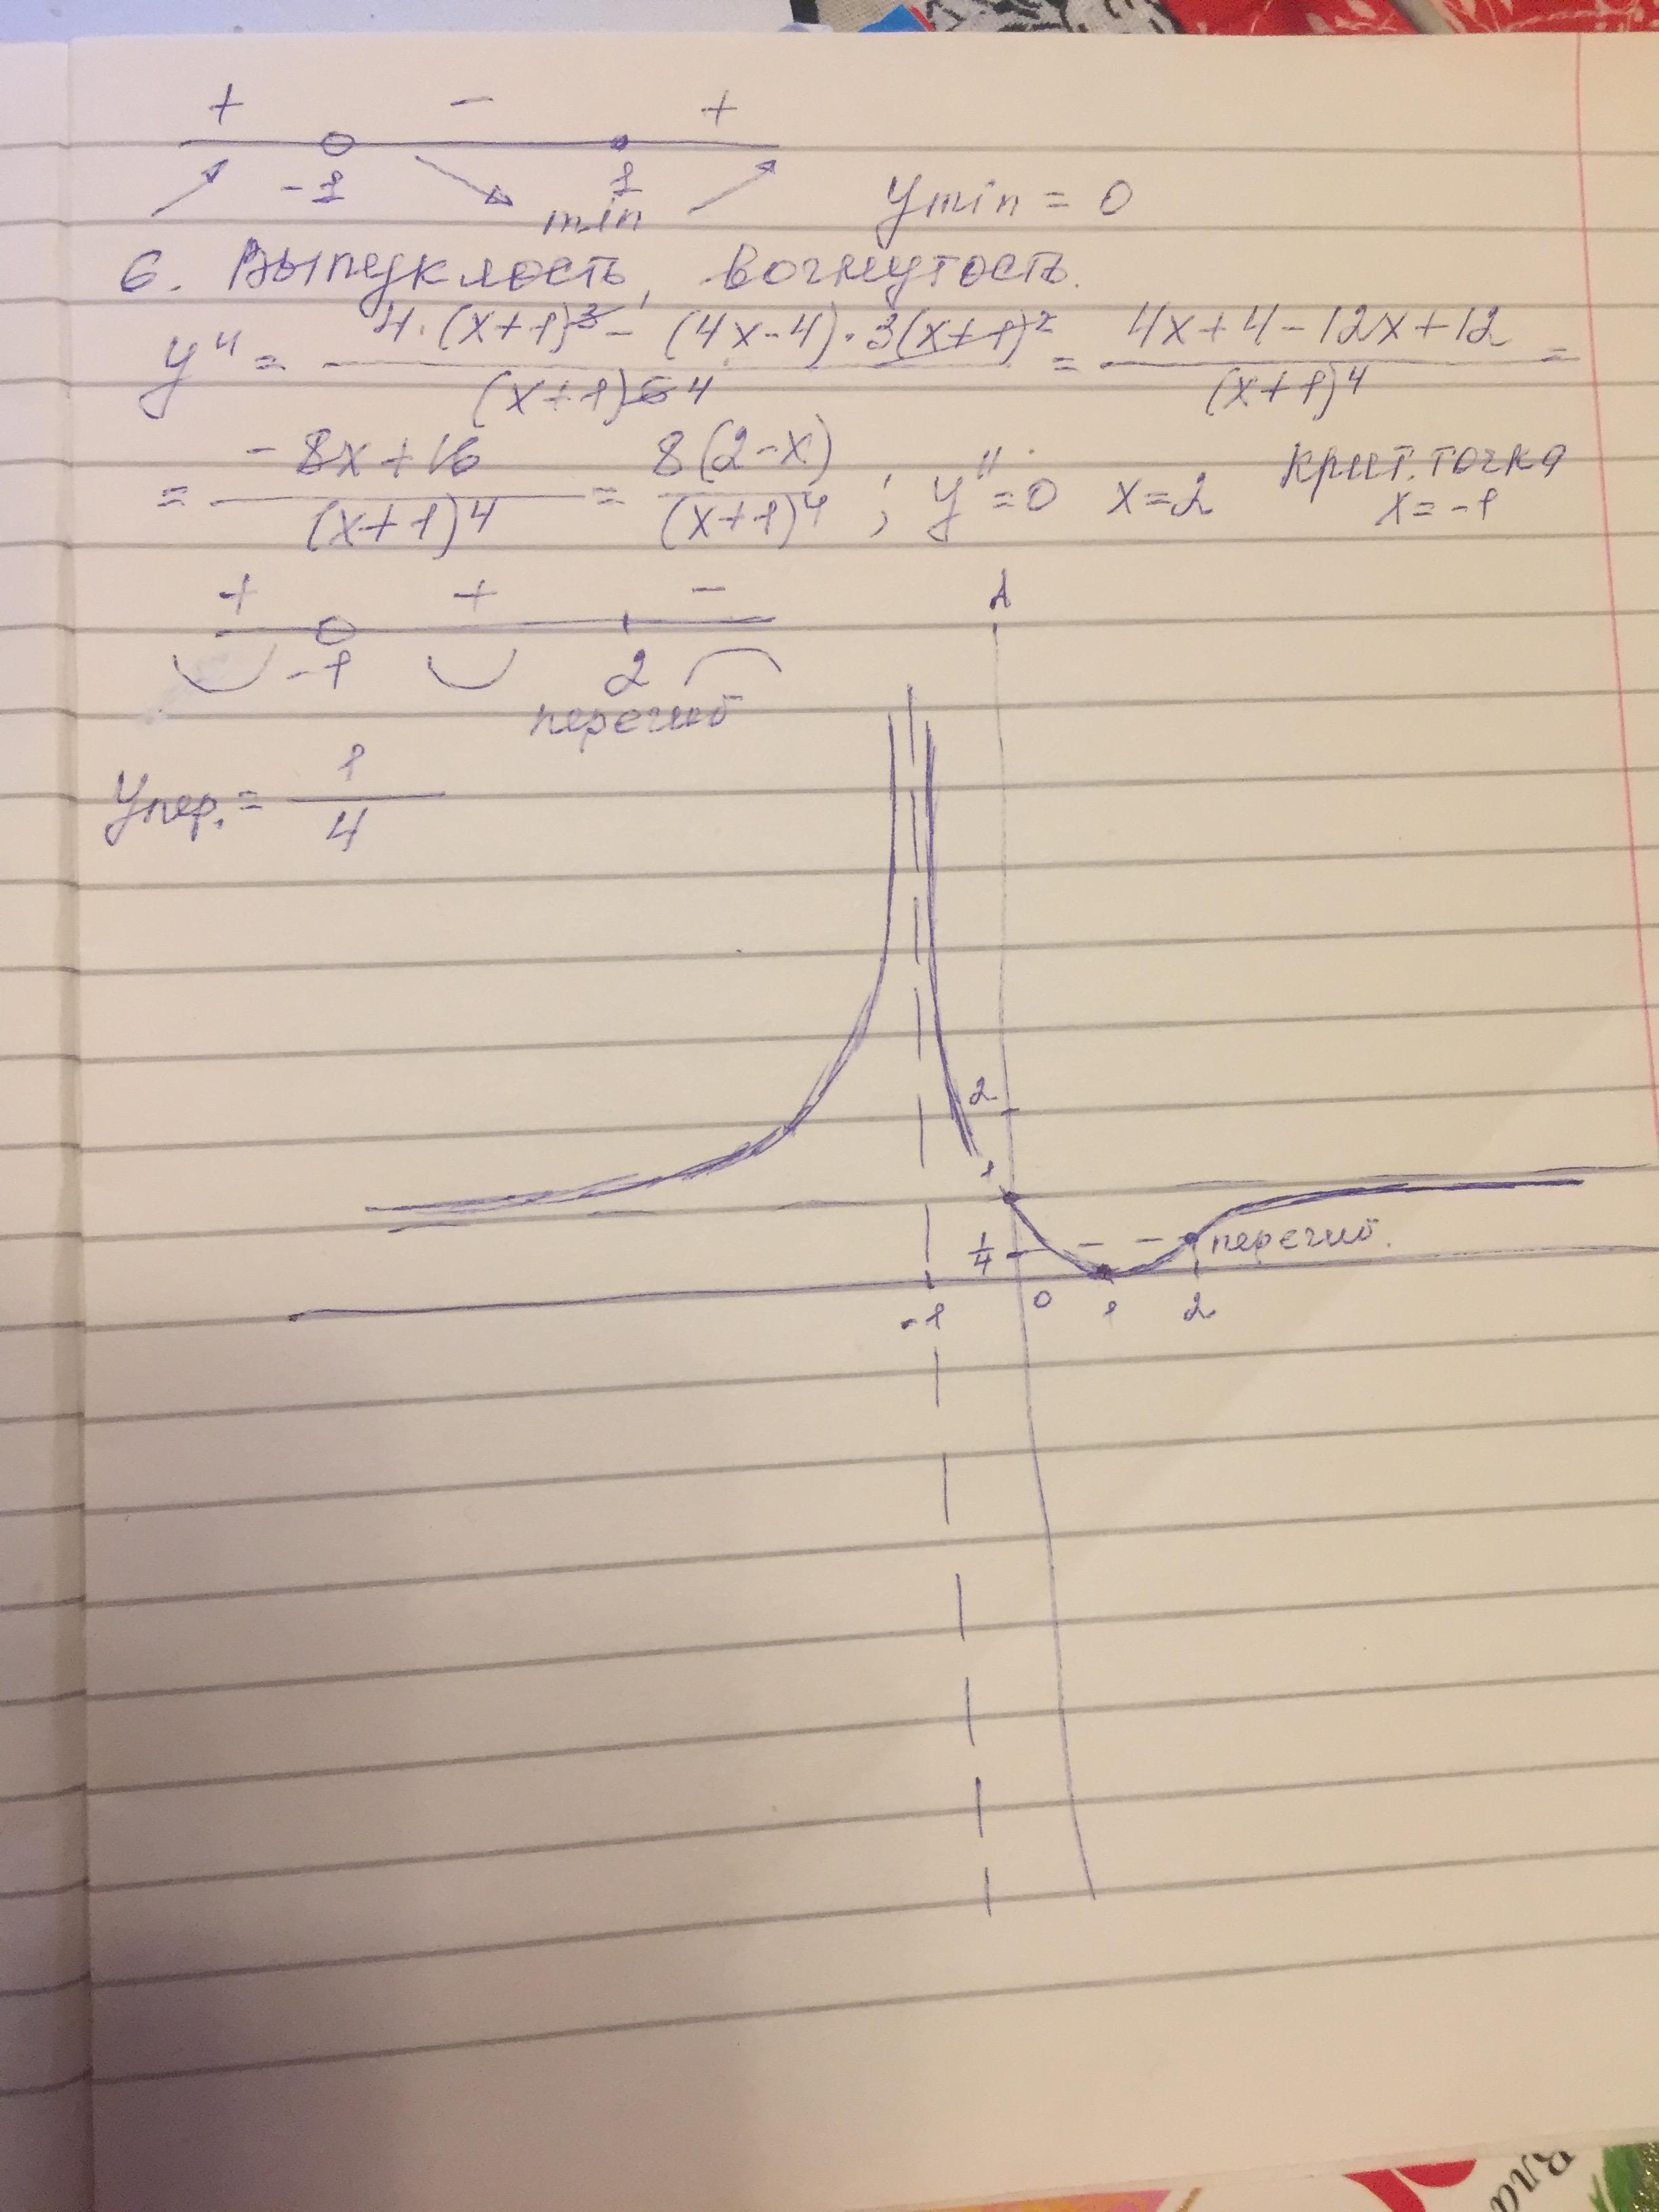 + − +
-1 1
min ymin = 0
6. Выпуклость, вогнутость.
y'' = 4·(x+1)³ − (4x-4)·3(x+1)² / (x+1)⁶ ⁴ = 4x+4−12x+12 / (x+1)⁴ =
= −8x+16 / (x+1)⁴ = 8(2−x) / (x+1)⁴ ; y''=0 x=2 крит. точка x=-1
+ + −
-1 2
перегиб
yпер. = 1/4
2
1
1/4 перегиб.
-1 0 1 2
Вла